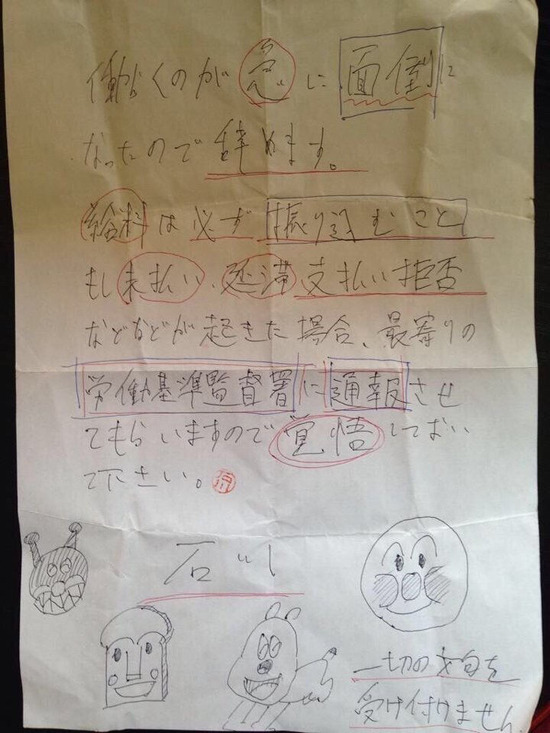 働くのが急に面倒に
なったので辞めます。
給料は必ず振り込むこと
もし未払い、延滞支払い拒否
などなどが起きた場合、最寄りの
労働基準監督署に通報させ
てもらいますので覚悟しておい
て下さい。
石川
一切の文句を
受け付けません